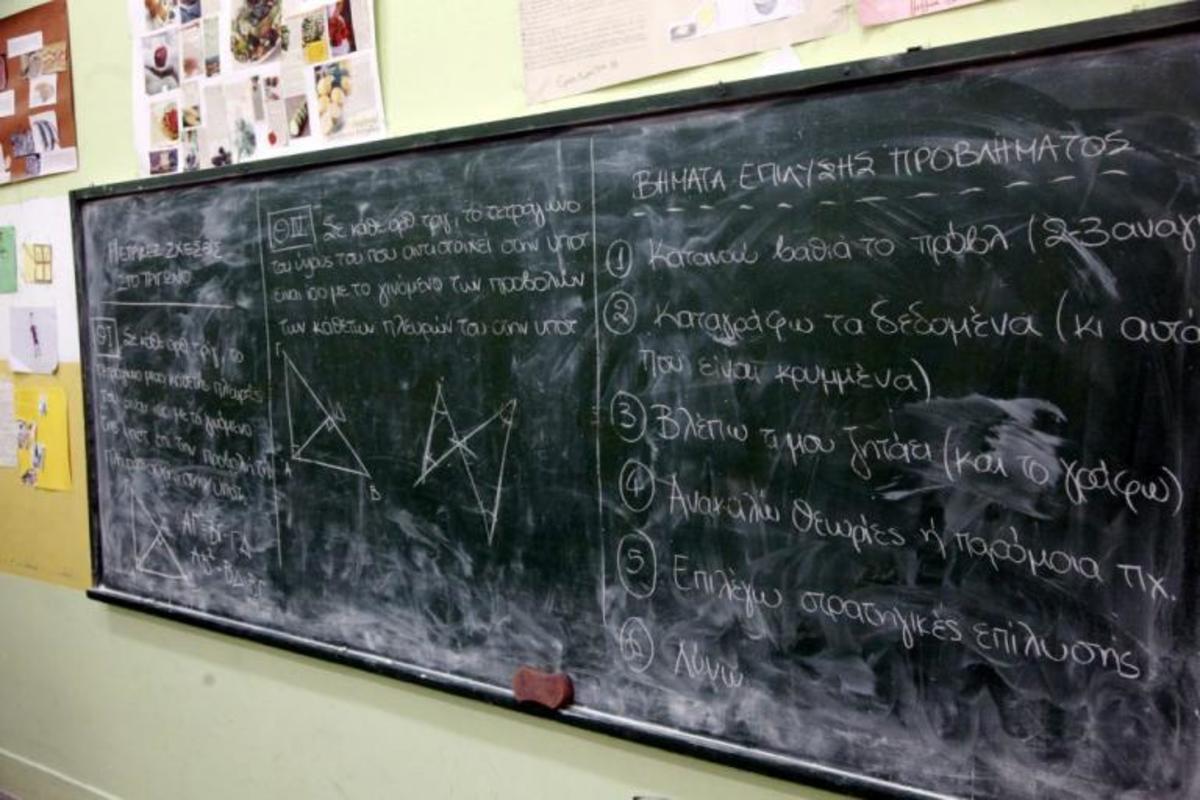 ΜΕΤΡΙΚΕΣ ΣΧΕΣΕΙΣ
ΣΤΟ ΤΡΙΓΩΝΟ
ΘΙ Σε κάθε ορθ τριγ, το
τετράγωνο μιας κάθετης πλευράς
του είναι ίσο με το γινόμενο
της υποτ επί την προβολή της
πλευράς αυτής στην υποτ.
ΘΙΙ Σε κάθε ορθ τριγ, το τετράγωνο
του ύψους του που αντιστοιχεί στην υποτ
είναι ίσο με το γινόμενο των προβολών
των κάθετων πλευρών του στην υποτ
Γ
Δ
Α
Β
ΒΗΜΑΤΑ ΕΠΙΛΥΣΗΣ ΠΡΟΒΛΗΜΑΤΟΣ
1 Κατανοώ βαθιά το πρόβλ (2-3 αναγ
2 Καταγράφω τα δεδομένα (κι αυτά
που είναι κρυμμένα)
3 Βλέπω τι μου ζητάει (και το γράφω)
4 Ανακαλώ θεωρίες ή παρόμοια πχ.
5 Επιλέγω στρατηγικές επίλυσης
6 Λύνω